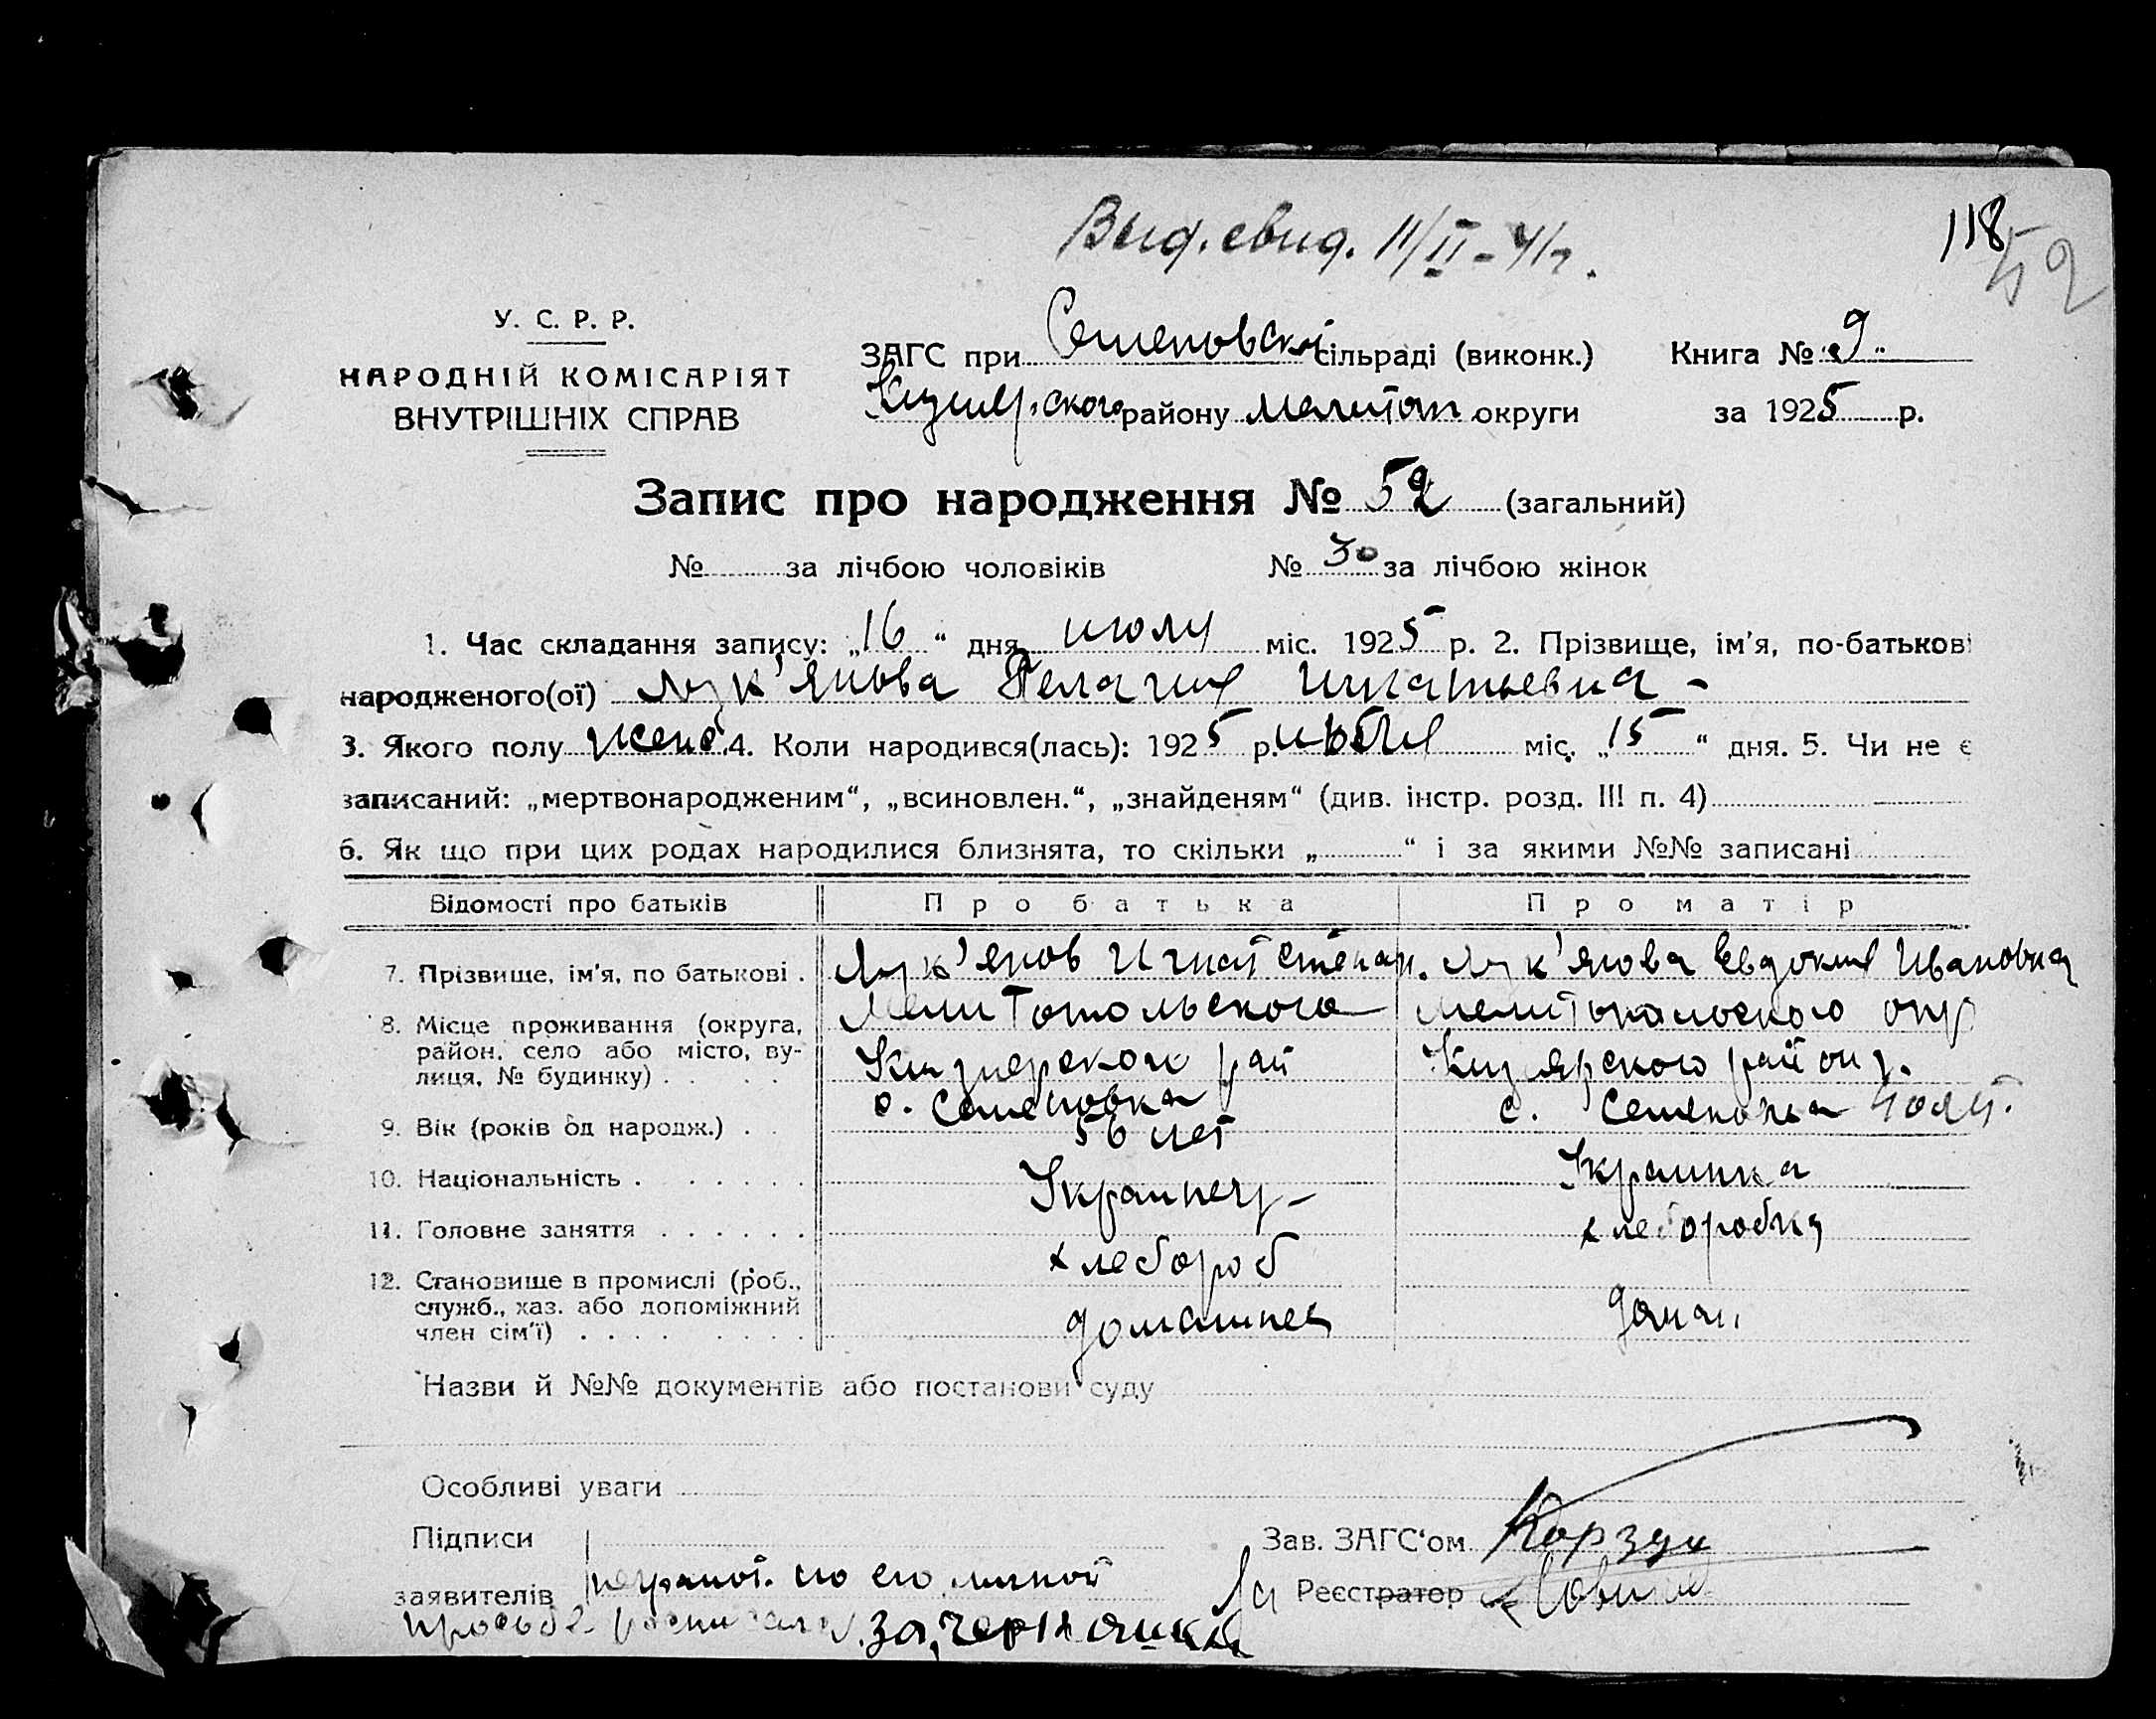 Выд. свид. 11/II-41г.
118
52
У. С. Р. Р.
НАРОДНІЙ КОМІСАРІЯТ
ВНУТРІШНІХ СПРАВ
ЗАГС при Семеновскі сільраді (виконк.) Книга № 9
Кизиярского району Мелитоп округи за 1925 р.
Запис про народження № 52 (загальний)
№ за лічбою чоловіків № 30 за лічбою жінок
1. Час складання запису: „16“ дня июля міс. 1925 р. 2. Прізвище, ім'я, по-батькові
народженого(ої) Лук'янова Пелагия Игнатьевна -
3. Якого полу женс 4. Коли народився(лась): 1925 р. июля міс. „15“ дня. 5. Чи не є
записаний: „мертвонародженим“, „всиновлен.“, „знайденям“ (див. інстр. розд. III п. 4)
6. Як що при цих родах народилися близнята, то скільки „ “ і за якими №№ записані
Відомості про батьків Про батька Про матір
7. Прізвище, ім'я, по батькові . Лук'янов Игнат Степан. Лук'янова Евдокия Ивановна
8. Місце проживання (округа, район, село або місто, вулиця, № будинку) . . . .
Мелитопольского
Кизиярского рай
с. Семеновка
Мелитопольского окр
Кизиярского району.
с. Семеновка
9. Вік (років од народж.) . . 56 лет 40 лет.
10. Національність . . . . . . Украинец - Украинка
11. Головне заняття . . . . . . хлебороб хлеборобка
12. Становище в промислі (роб., служб., хаз. або допоміжний член сім'ї) . . . . . . . .
домашнее
Назви й №№ документів або постанови суду
Особливі уваги
Підписи
заявителів неграмот. по его личной
просьбе расписался за, черняшки
Зав. ЗАГС'ом Корзун
Реєстратор